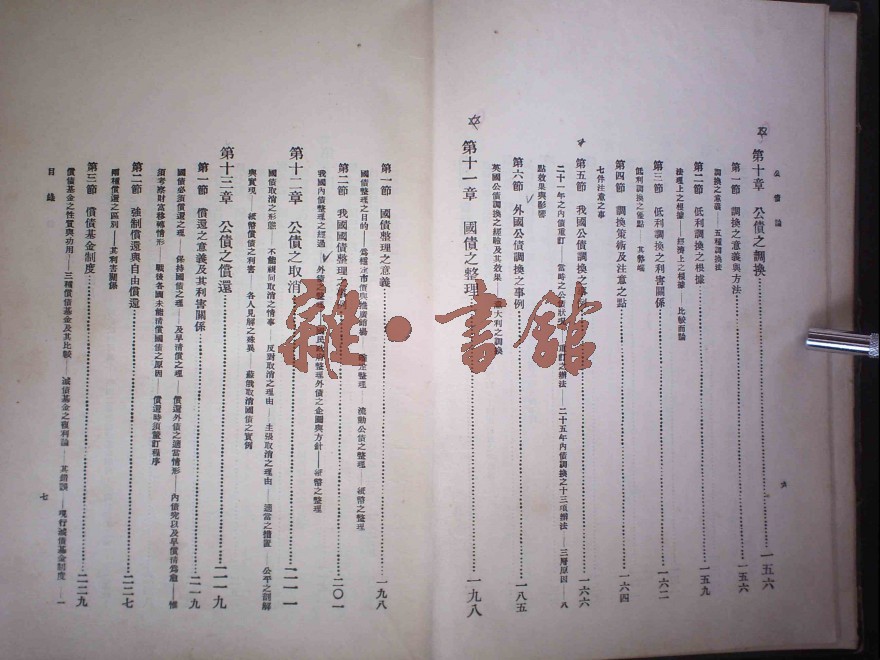 公債論
第十章 公債之調換……一五六
第一節 調換之意義與方法……一五六
調換之意義——五種調換法
第二節 低利調換之根據……一五九
法理上之根據——經濟上之根據——比較而論
第三節 低利調換之利害關係……一六二
低利調換之優點——其弊端
第四節 調換策術及注意之點……一六四
七件注意之事
第五節 我國公債調換之事例……一六六
二十一年之內債重訂——當時之公債狀況——重訂之辦法——二十五年內債調換之十三項辦法——三層原因——八
點效果與影響
第六節 外國公債調換之事例……一八五
英國公債調換之經驗及其效果——意大利之調換
第十一章 國債之整理……一九八
六
第一節 國債整理之意義……一九八
國債整理之目的——為穩定市價與推廣銷場——整理——流動公債之整理——紙幣之整理
第二節 我國國債整理之……二〇一
我國內債整理之經過——外債之整——民政府整理外債之企圖與方針——紙幣之整理
第十二章 公債之取消……二一一
國債取消之形態——不能視同取消之情事——反對取消之理由——主張取消之理由——適當之措置——公平之調解
與實現——紙幣價債之利害——各人見解之殊異——蘇俄取消國債之實例
第十三章 公債之償還……二一九
第一節 償還之意義及其利害關係……二一九
國債必須償還之理——保持國債之理——及早清償之理——償還外債之適當情形——內債完以及早償清為愈——惟
須考察財富移轉情形——戰後各國未能清償國債之原因——償還時須釐訂程序
第二節 強制償還與自由償還……二二七
兩種償還之區別——其利害關係
第三節 償債基金制度……二二九
償債基金之性質與功用——三種償債基金及其比較——減債基金之複利論——其錯誤——現行減債基金制度——一
目錄
七
雜·書館